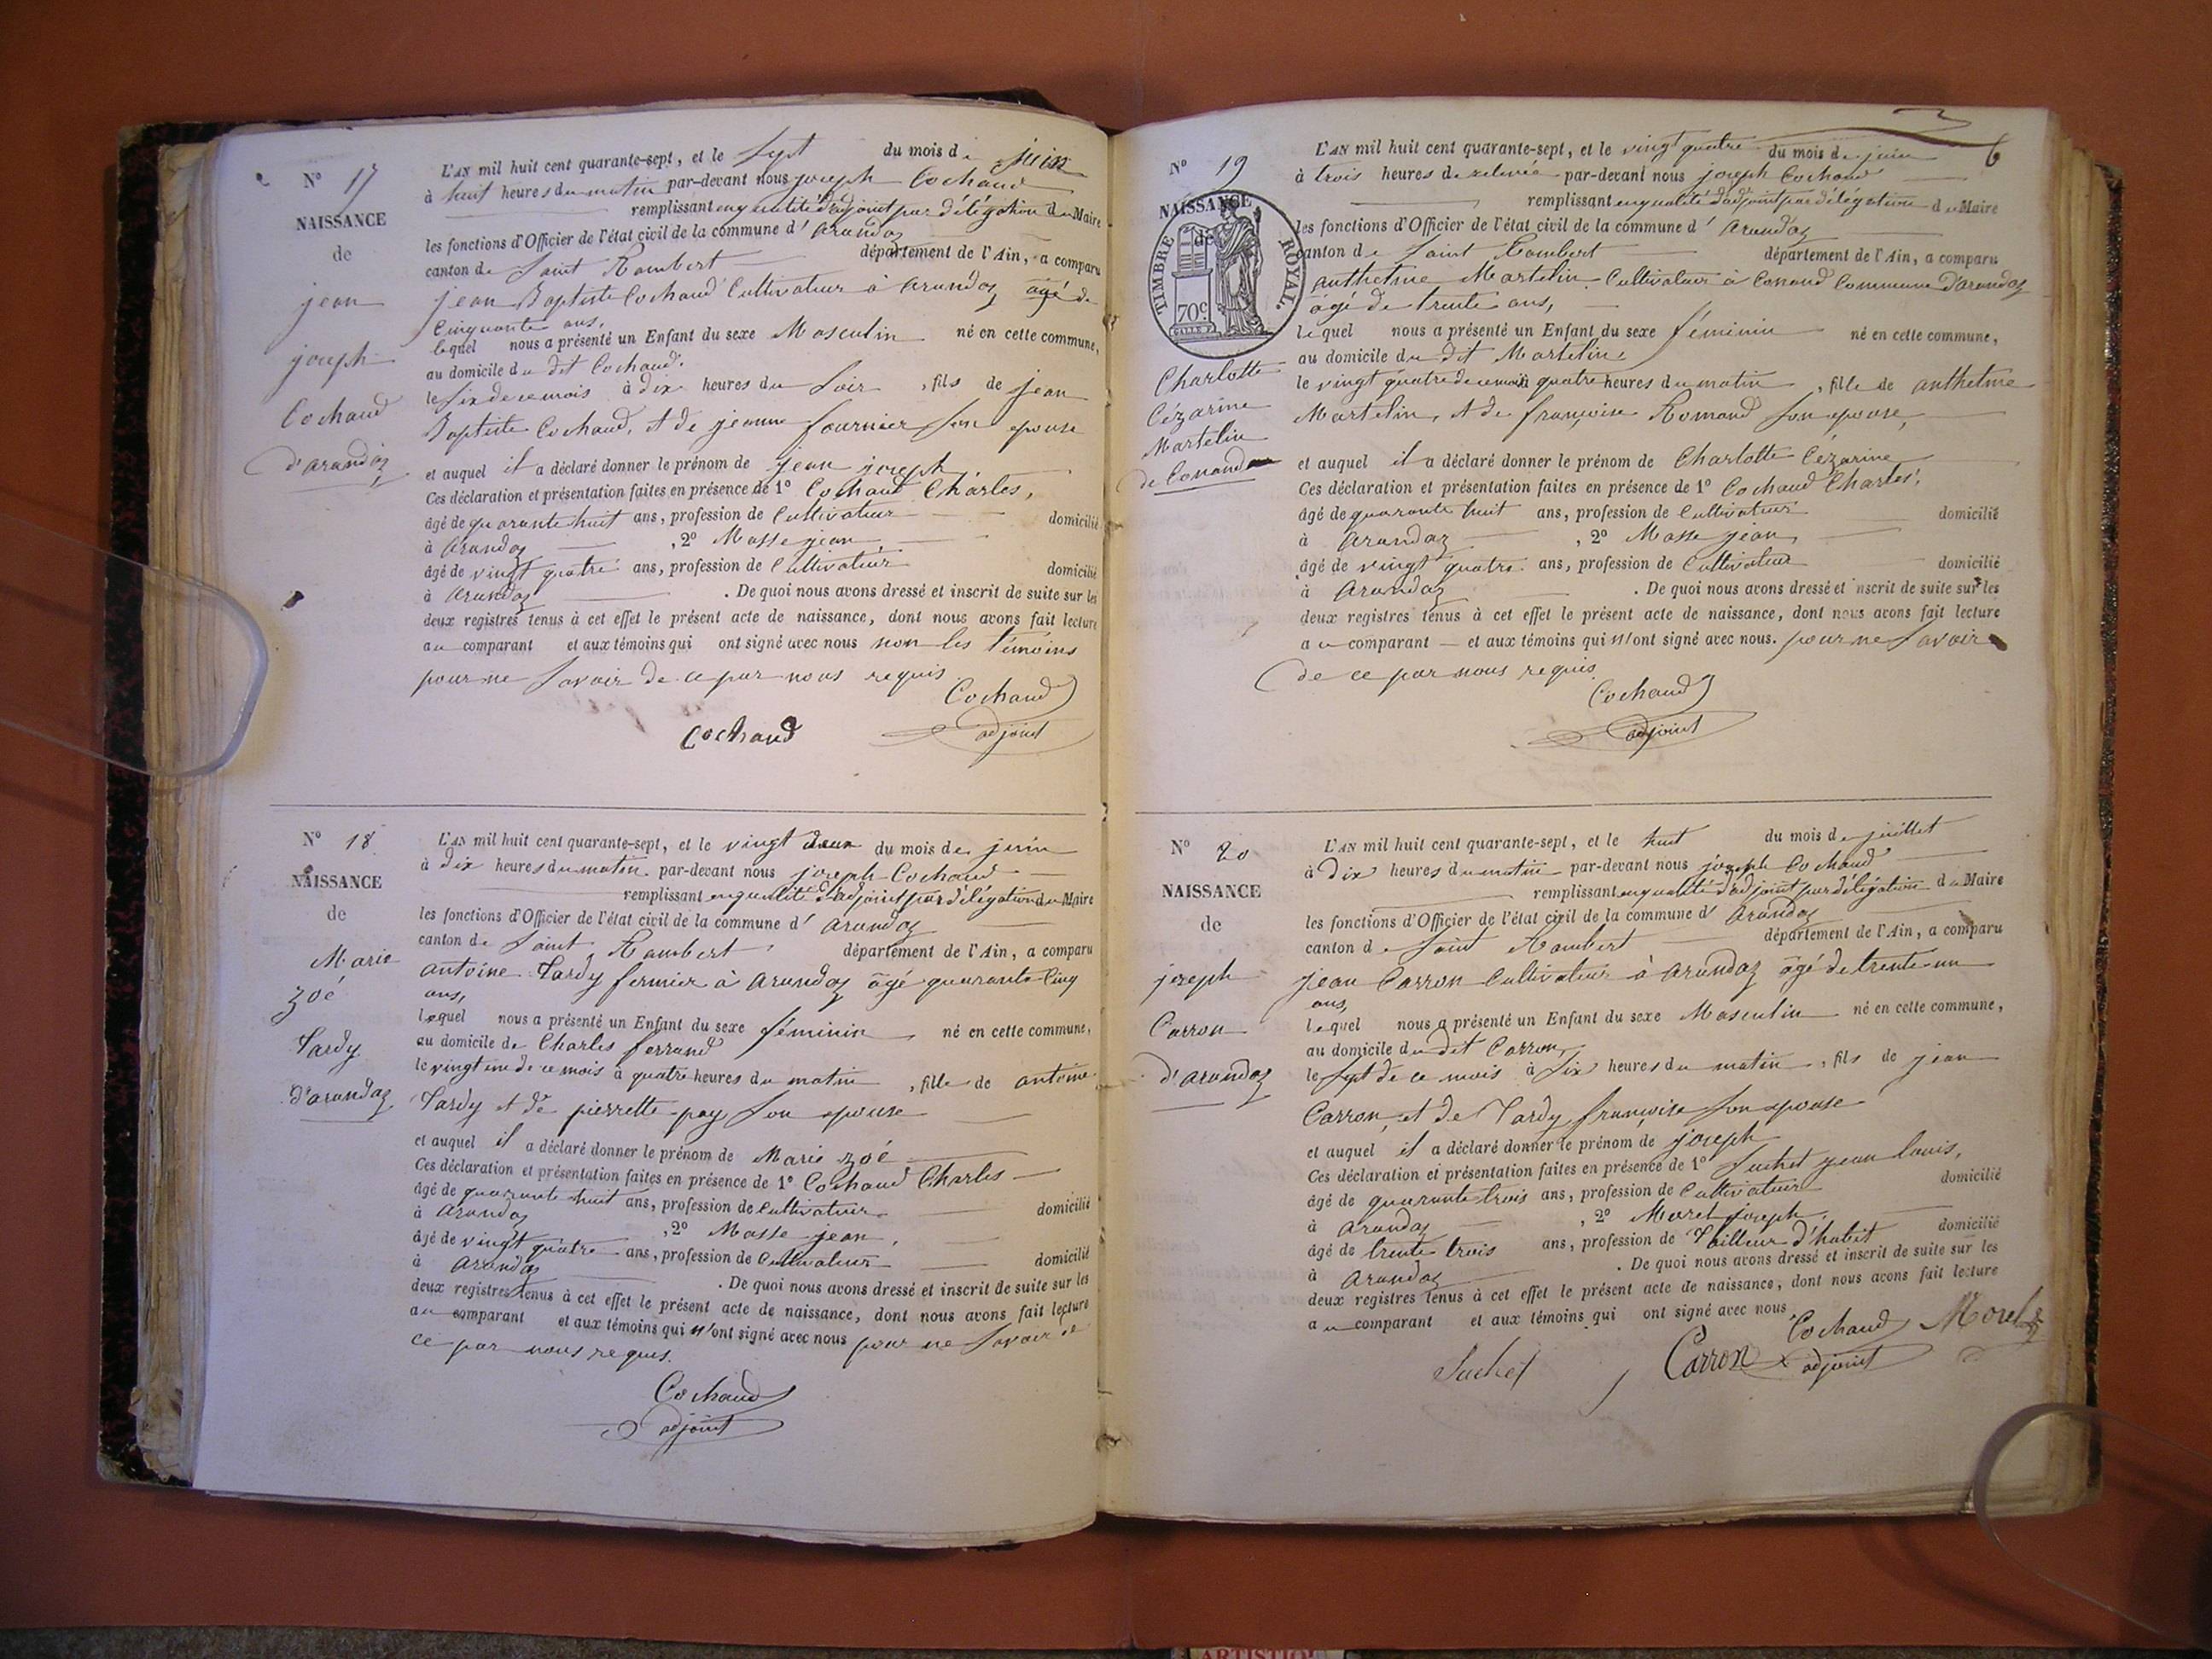 Nº 17
NAISSANCE
de
jean
joseph
Cochaud
d'arandaz
L'AN mil huit cent quarante-sept, et le sept du mois de juin
à huit heures du matin par-devant nous joseph Cochaud
remplissant en qualité d'adjoint par délégation du Maire
les fonctions d'Officier de l'état civil de la commune d'arandaz
canton de Saint Rambert département de l'Ain, a comparu
jean Baptiste Cochaud Cultivateur à arandaz agé de
Cinquante ans,
lequel nous a présenté un Enfant du sexe Masculin né en cette commune,
au domicile du dit Cochaud.
le six de ce mois à dix heures du soir, fils de jean
Baptiste Cochaud, et de jeanne fournier son epouse
et auquel il a déclaré donner le prénom de jean joseph.
Ces déclaration et présentation faites en présence de 1º Cochaud Charles,
âgé de quarante huit ans, profession de Cultivateur domicilié
à Arandaz, 2º Masse jean,
âgé de vingt quatre ans, profession de Cultivateur domicilié
à Arandaz. De quoi nous avons dressé et inscrit de suite sur les
deux registres tenus à cet effet le présent acte de naissance, dont nous avons fait lecture
au comparant et aux témoins qui ont signé avec nous non les témoins
pour ne savoir de ce par nous requis
Cochaud
Cochaud adjoint
Nº 18
NAISSANCE
de
Marie
zoé
Tardy
d'arandaz
L'AN mil huit cent quarante-sept, et le vingt deux du mois de juin
à dix heures du matin par-devant nous joseph Cochaud
remplissant en qualité d'adjoint par délégation du Maire
les fonctions d'Officier de l'état civil de la commune d'arandaz
canton de Saint Rambert département de l'Ain, a comparu
antoine Tardy fermier à arandaz âgé quarante Cinq
ans,
lequel nous a présenté un Enfant du sexe féminin né en cette commune,
au domicile de Charles ferrand
le vingt un de ce mois à quatre heures du matin, fille de antoine
Tardy et de pierrette pay son epouse
et auquel il a déclaré donner le prénom de Marie zoé
Ces déclaration et présentation faites en présence de 1º Cochaud Charles
âgé de quarante huit ans, profession de Cultivateur domicilié
à arandaz, 2º Masse jean,
âgé de vingt quatre ans, profession de Cultivateur domicilié
à arandaz. De quoi nous avons dressé et inscrit de suite sur les
deux registres tenus à cet effet le présent acte de naissance, dont nous avons fait lecture
au comparant et aux témoins qui n'ont signé avec nous pour ne savoir de
ce par nous requis.
Cochaud
adjoint
6
Nº 19
NAISSANCE
de
TIMBRE ROYAL.
70c
Charlotte
Cézarine
Martelin
de Conand
L'AN mil huit cent quarante-sept, et le vingt quatre du mois de juin
à trois heures de relevée par-devant nous joseph Cochaud
remplissant en qualité d'adjoint par délégation du Maire
les fonctions d'Officier de l'état civil de la commune d'arandaz
canton de Saint Rambert département de l'Ain, a comparu
anthelme Martelin. Cultivateur à Conand Commune d'arandaz
âgé de trente ans,
lequel nous a présenté un Enfant du sexe féminin né en cette commune,
au domicile du dit Martelin
le vingt quatre de ce mois à quatre heures du matin, fille de anthelme
Martelin, et de françoise Romand son epouse,
et auquel il a déclaré donner le prénom de Charlotte Cézarine
Ces déclaration et présentation faites en présence de 1º Cochaud Charles,
âgé de quarante huit ans, profession de Cultivateur domicilié
à Arandaz, 2º Masse jean,
âgé de vingt quatre ans, profession de Cultivateur domicilié
à Arandaz. De quoi nous avons dressé et inscrit de suite sur les
deux registres tenus à cet effet le présent acte de naissance, dont nous avons fait lecture
au comparant et aux témoins qui n'ont signé avec nous. pour ne savoir
de ce par nous requis.
Cochaud
adjoint
Nº 20
NAISSANCE
de
joseph
Carron
d'arandaz
L'AN mil huit cent quarante-sept, et le huit du mois de juillet
à dix heures du matin par-devant nous joseph Cochaud
remplissant en qualité d'adjoint par délégation du Maire
les fonctions d'Officier de l'état civil de la commune d'arandaz
canton de Saint Rambert département de l'Ain, a comparu
jean Carron Cultivateur à arandaz âgé de trente un
ans,
lequel nous a présenté un Enfant du sexe Masculin né en cette commune,
au domicile du dit Carron,
le sept de ce mois à six heures du matin, fils de jean
Carron, et de Tardy françoise son epouse
et auquel il a déclaré donner le prénom de joseph
Ces déclaration et présentation faites en présence de 1º Suchet jean louis,
âgé de quarante trois ans, profession de Cultivateur domicilié
à arandaz, 2º Morel joseph,
âgé de trente trois ans, profession de Tailleur d'habit domicilié
à arandaz. De quoi nous avons dressé et inscrit de suite sur les
deux registres tenus à cet effet le présent acte de naissance, dont nous avons fait lecture
au comparant et aux témoins qui ont signé avec nous.
Cochaud Morel
Suchet Carron adjoint